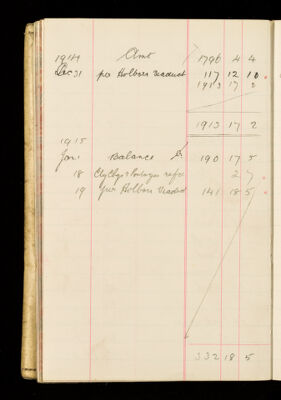 1914 Amt 1796 4 4
Dec 31 po Holborn Viaduct 117 12 10
1913 17 2
1913 17 2
1915
Jan 1 Balance 190 17 5
18 2 7
19 Holborn Viaduct 141 18 5
332 18 5